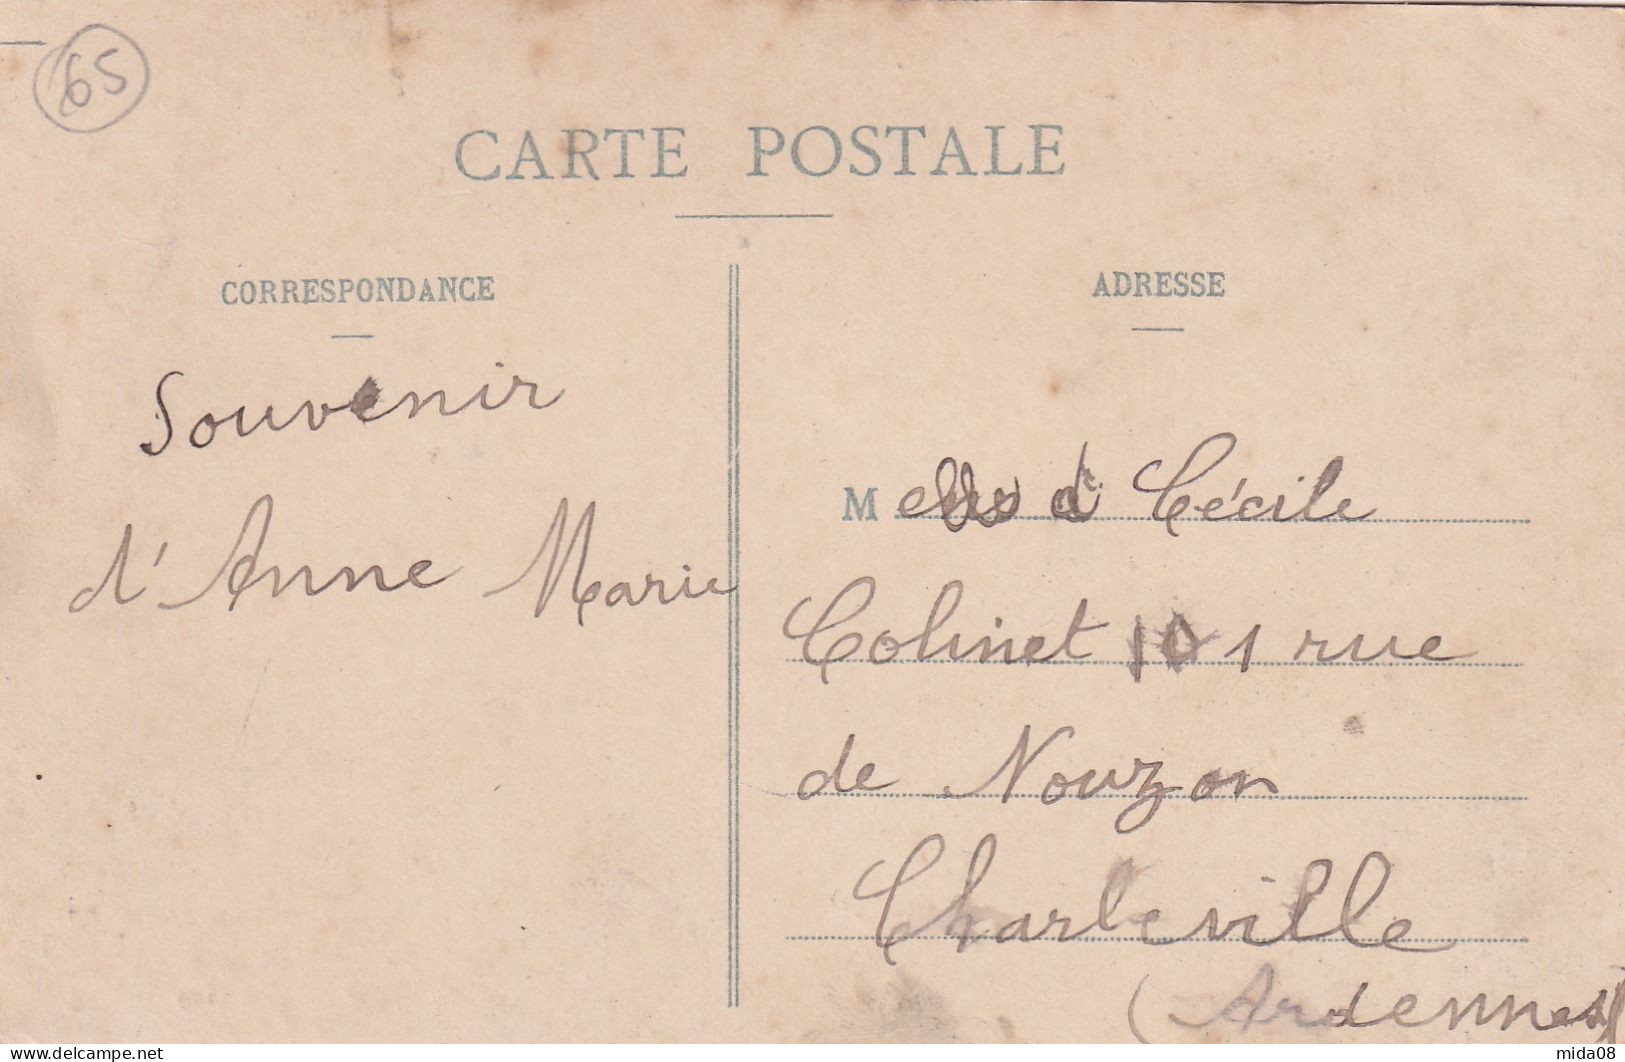 65
CARTE POSTALE
CORRESPONDANCE
ADRESSE
Souvenir
d'Anne Marie
M Cécile
Colinet 101 rue
de Nouzon
Charleville
(Ardennes)
mida08